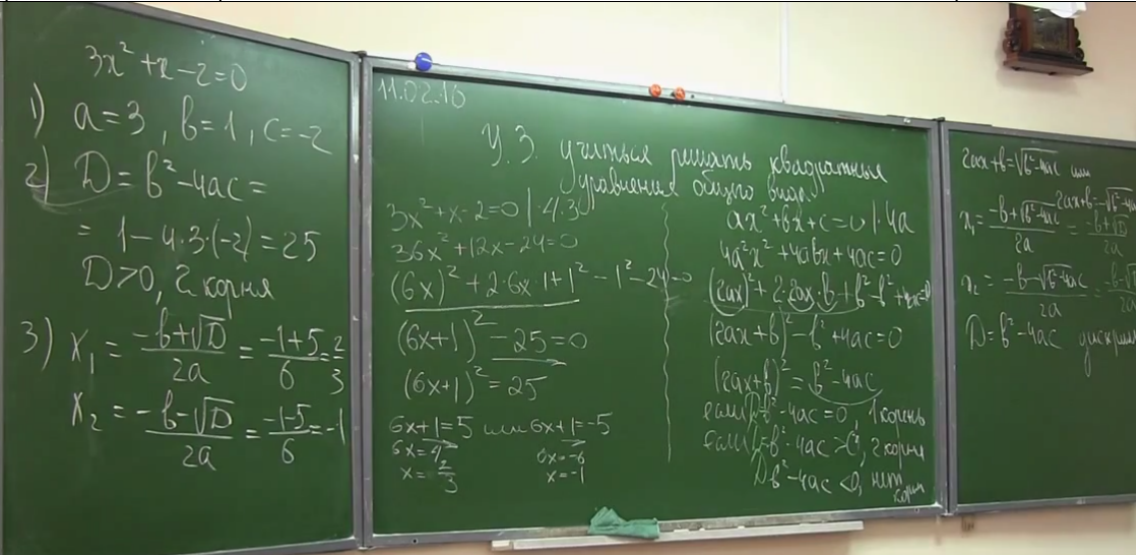 3x² + x - 2 = 0
1) a = 3, b = 1, c = -2
2) D = b² - 4ac =
= 1 - 4·3·(-2) = 25
D > 0, 2 корня
3) x₁ = (-b+√D)/2a = (-1+5)/6 = 2/3
x₂ = (-b-√D)/2a = (-1-5)/6 = -1
11.02.16
У.З. учиться решать квадратные
уравнения общего вида.
3x² + x - 2 = 0 | · 4·3
36x² + 12x - 24 = 0
(6x)² + 2·6x·1 + 1² - 1² - 24 = 0
(6x+1)² - 25 = 0
(6x+1)² = 25
6x+1 = 5 или 6x+1 = -5
6x = 4
6x = -6
x = 2/3
x = -1
ax² + bx + c = 0 | · 4a
4a²x² + 4abx + 4ac = 0
(2ax)² + 2·2ax·b + b² - b² + 4ac = 0
(2ax+b)² - b² + 4ac = 0
(2ax+b)² = b² - 4ac
если D = b² - 4ac = 0, 1 корень
если D = b² - 4ac > 0, 2 корня
D b² - 4ac < 0, нет
корн
2ax + b = √b² - 4ac или
2ax+b = -√b² - 4ac
x₁ = (-b+√b² - 4ac)/2a = (-b+√D)/2a
x₂ = (-b-√b² - 4ac)/2a = -b-√
D = b² - 4ac дискрим